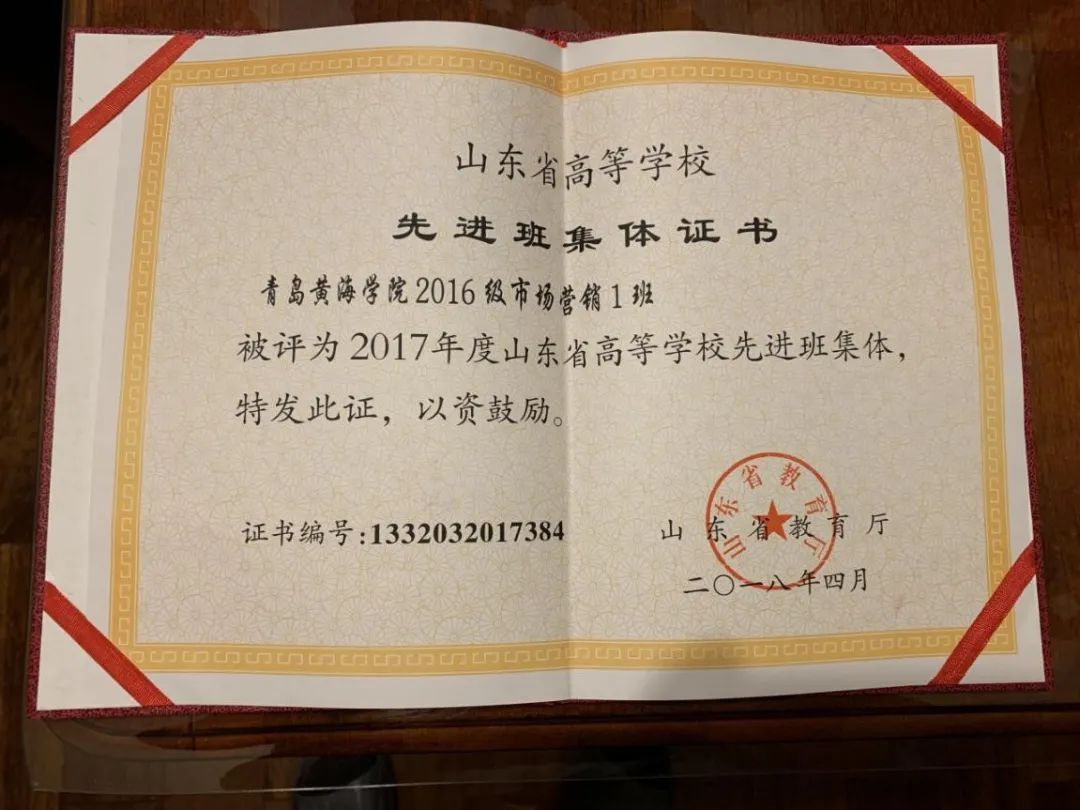 山东省高等学校
先进班集体证书
青岛黄海学院2016级市场营销1班
被评为2017年度山东省高等学校先进班集体，
特发此证，以资鼓励。
证书编号:1332032017384
山东省教育厅
山东省教育厅
二〇一八年四月